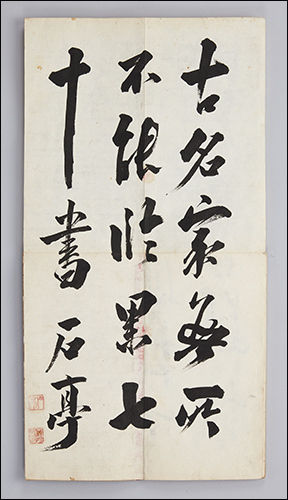 古名家無所
不能臨七
十書石亭